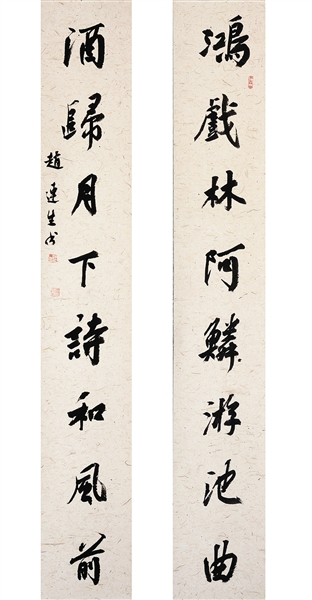 鴻戲林阿鱗游池曲
酒歸月下詩和風前
趙連生書